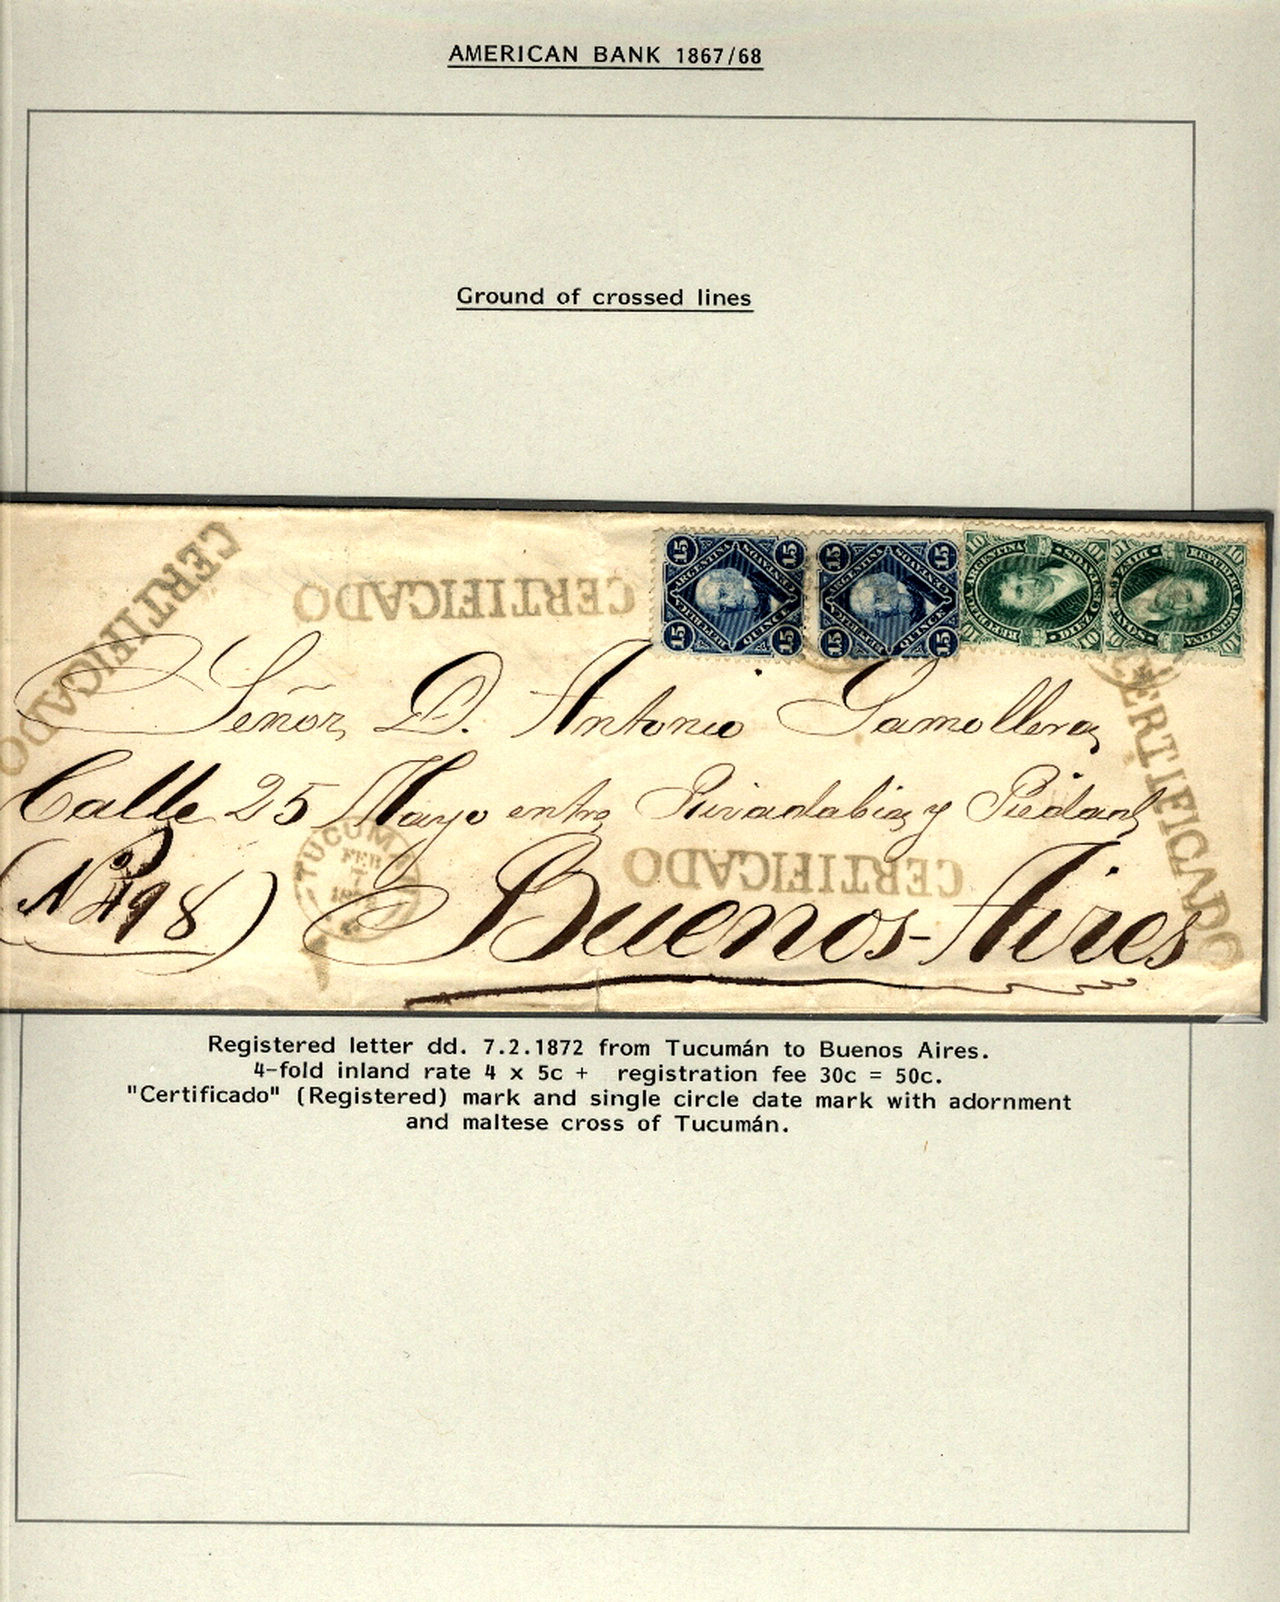 AMERICAN BANK 1867/68
Ground of crossed lines
CERTIFICADO
CERTIFICADO
15 15 ARGENTINA CENTAVOS REPUBLICA QUINCE 15 15
15 15 ARGENTINA CENTAVOS REPUBLICA QUINCE 15 15
10 10 ARGENTINA CENTAVOS REPUBLICA DIEZ 10 10
10 10 REPUBLICA ARGENTINA DIEZ CENTAVOS 10 10
CERTIFICADO
Señor D. Antonio
Calle 25 Mayo entre Rivadabia y Piedad
TUCUMAN
FEB
CERTIFICADO
(Nº 498)
Buenos-Aires
Registered letter dd. 7.2.1872 from Tucumán to Buenos Aires.
4-fold inland rate 4 x 5c + registration fee 30c = 50c.
"Certificado" (Registered) mark and single circle date mark with adornment
and maltese cross of Tucumán.